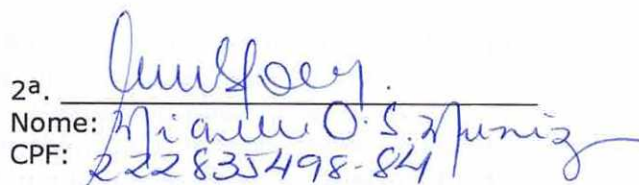 2ª.
Nome: O. S. Muniz
CPF: 222835498-84